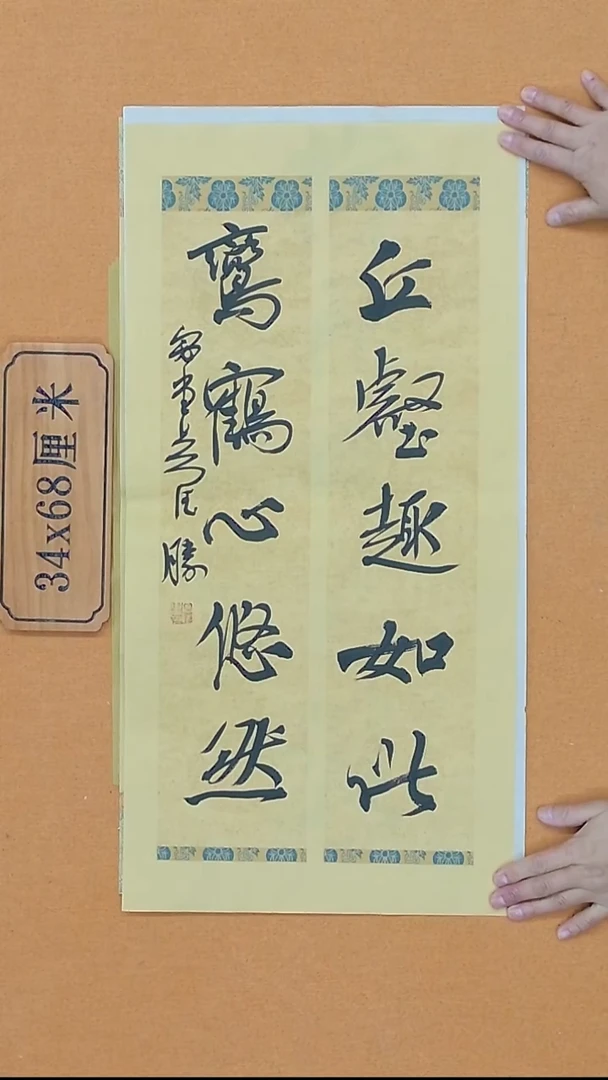 丘壑趣如此
鸞鶴心悠然
34x68厘米